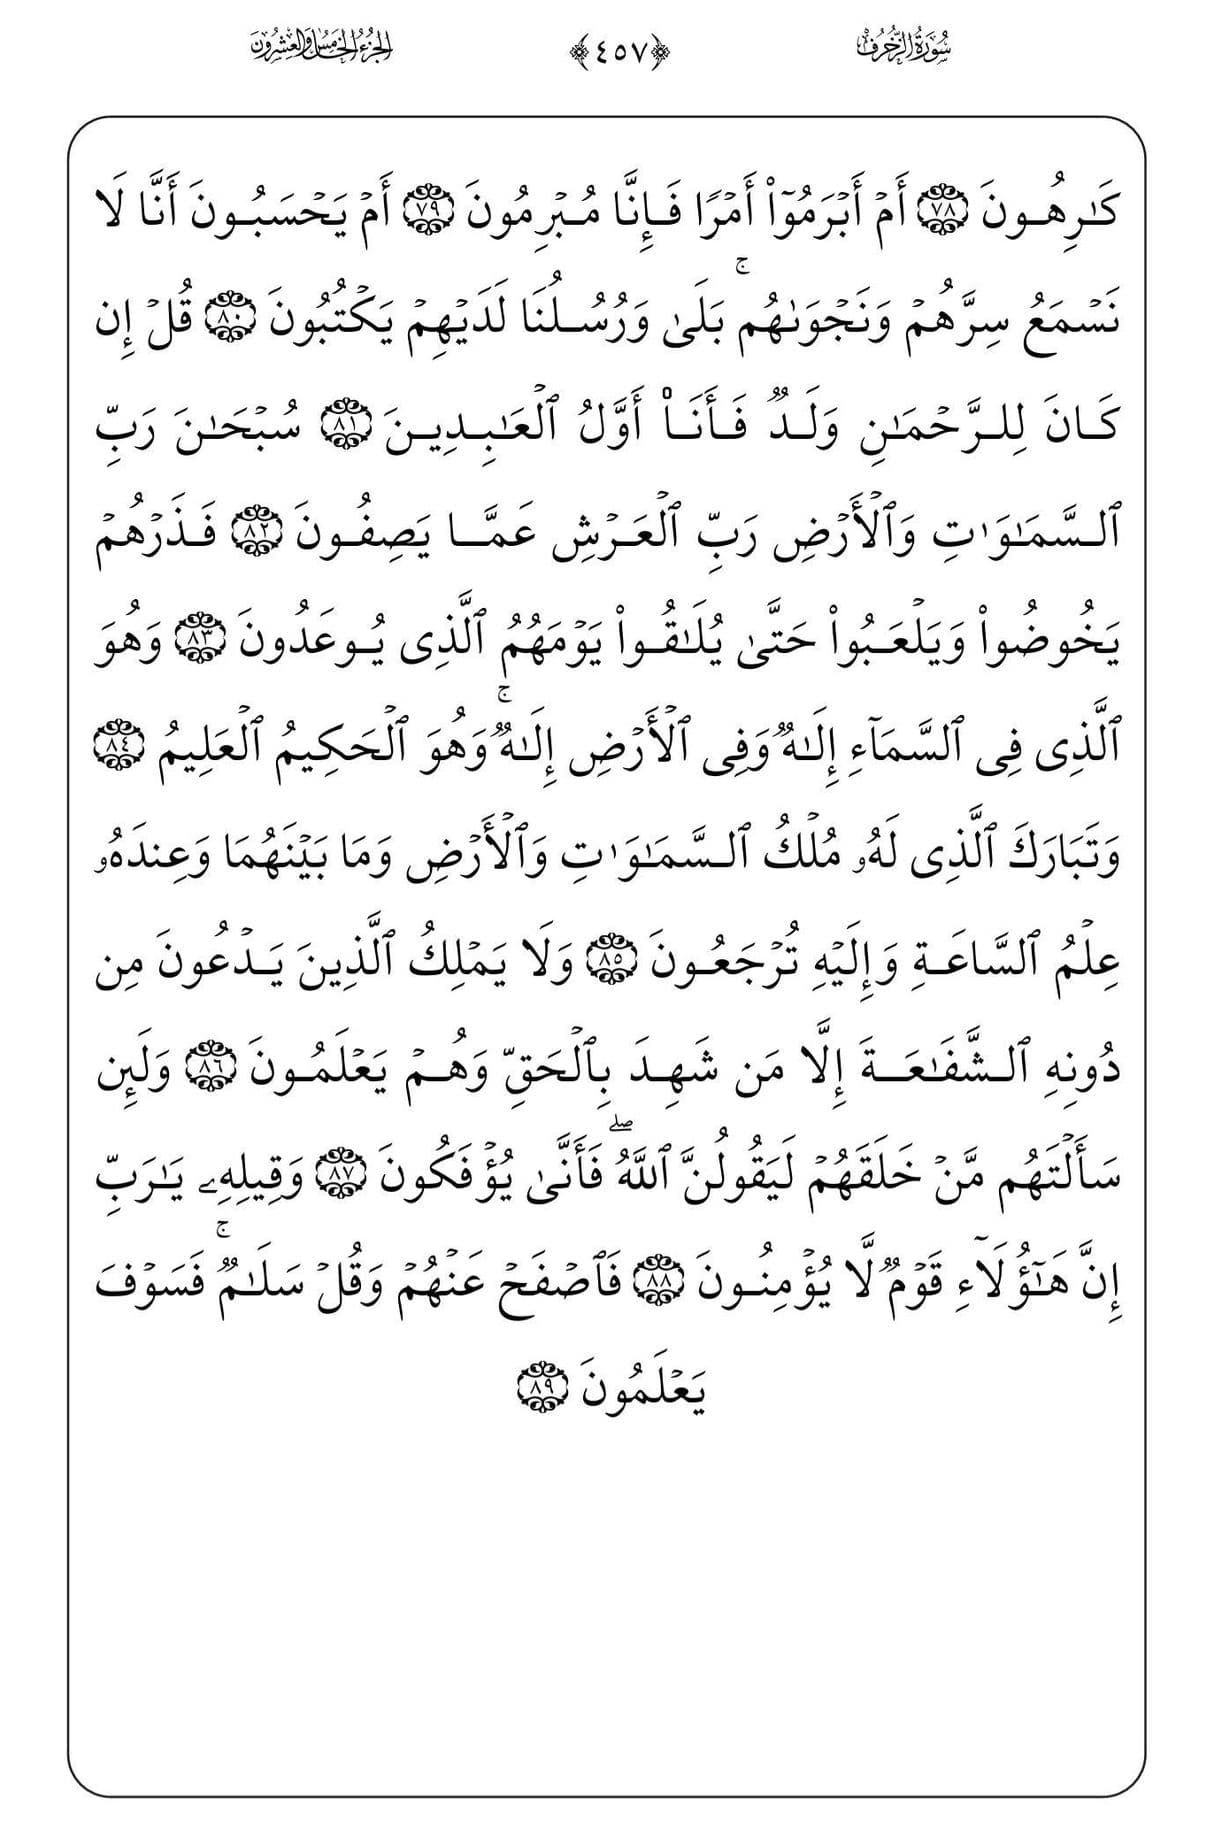 سُورَةُ الزُّخْرُفِ ﴿٤٥٧﴾ الجُزْءُ الخَامِسُ وَالعِشْرُونَ
كَٰرِهُونَ ٧٨ أَمۡ أَبۡرَمُوٓاْ أَمۡرٗا فَإِنَّا مُبۡرِمُونَ ٧٩ أَمۡ يَحۡسَبُونَ أَنَّا لَا
نَسۡمَعُ سِرَّهُمۡ وَنَجۡوَىٰهُمۚ بَلَىٰ وَرُسُلُنَا لَدَيۡهِمۡ يَكۡتُبُونَ ٨٠ قُلۡ إِن
كَانَ لِلرَّحۡمَٰنِ وَلَدٞ فَأَنَا۠ أَوَّلُ ٱلۡعَٰبِدِينَ ٨١ سُبۡحَٰنَ رَبِّ
ٱلسَّمَٰوَٰتِ وَٱلۡأَرۡضِ رَبِّ ٱلۡعَرۡشِ عَمَّا يَصِفُونَ ٨٢ فَذَرۡهُمۡ
يَخُوضُواْ وَيَلۡعَبُواْ حَتَّىٰ يُلَٰقُواْ يَوۡمَهُمُ ٱلَّذِى يُوعَدُونَ ٨٣ وَهُوَ
ٱلَّذِى فِى ٱلسَّمَآءِ إِلَٰهٞ وَفِى ٱلۡأَرۡضِ إِلَٰهٞۚ وَهُوَ ٱلۡحَكِيمُ ٱلۡعَلِيمُ ٨٤
وَتَبَارَكَ ٱلَّذِى لَهُۥ مُلۡكُ ٱلسَّمَٰوَٰتِ وَٱلۡأَرۡضِ وَمَا بَيۡنَهُمَا وَعِندَهُۥ
عِلۡمُ ٱلسَّاعَةِ وَإِلَيۡهِ تُرۡجَعُونَ ٨٥ وَلَا يَمۡلِكُ ٱلَّذِينَ يَدۡعُونَ مِن
دُونِهِ ٱلشَّفَٰعَةَ إِلَّا مَن شَهِدَ بِٱلۡحَقِّ وَهُمۡ يَعۡلَمُونَ ٨٦ وَلَئِن
سَأَلۡتَهُم مَّنۡ خَلَقَهُمۡ لَيَقُولُنَّ ٱللَّهُۖ فَأَنَّىٰ يُؤۡفَكُونَ ٨٧ وَقِيلِهِۦ يَٰرَبِّ
إِنَّ هَٰٓؤُلَآءِ قَوۡمٞ لَّا يُؤۡمِنُونَ ٨٨ فَٱصۡفَحۡ عَنۡهُمۡ وَقُلۡ سَلَٰمٞۚ فَسَوۡفَ
يَعۡلَمُونَ ٨٩